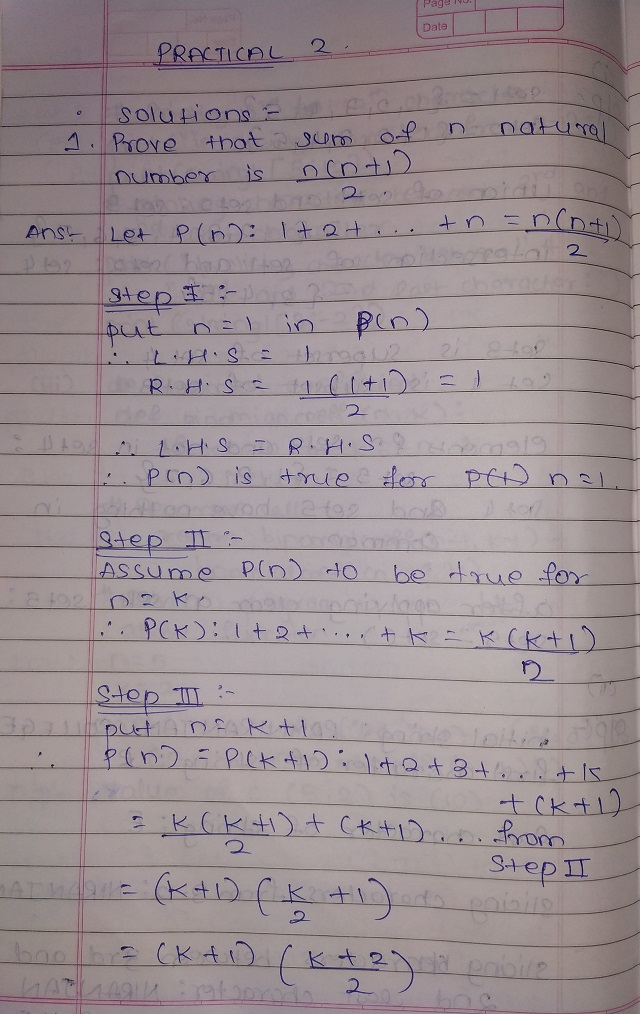 Page No.
Date
PRACTICAL 2.
• solutions =
1. Prove that sum of n natural
number is n(n+1)/2.
Ans:- Let P(n): 1+2+... +n = n(n+1)/2
Step I :-
put n=1 in P(n)
∴ L.H.S = 1
R.H.S = 1(1+1)/2 = 1
∴ L.H.S = R.H.S
∴ P(n) is true for n=1.
Step II :-
Assume P(n) to be true for
n = k.
∴ P(k): 1+2+... +k = k(k+1)/n
Step III :-
put n=k+1.
∴ P(n) = P(k+1): 1+2+3+... +k
+(k+1)
= k(k+1)/2 + (k+1)... from
Step II
= (k+1)(k/2 +1)
= (k+1)(k+2/2)